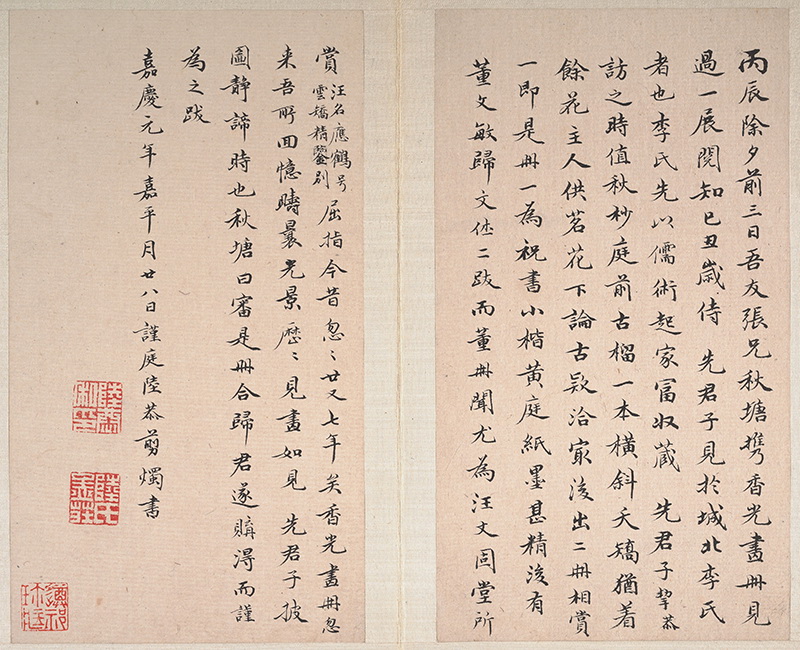 丙辰除夕前三日吾友張兄秋塘携香光畫冊見
過一展閱知己丑歲侍 先君子見於城北李氏
者也李氏先以儒術起家富收藏 先君子挈恭
訪之時值秋杪庭前古榴一本橫斜夭矯猶着
餘花主人供茗花下論古欵洽冣後出二冊相賞
一即是冊一為祝書小楷黃庭紙墨甚精後有
董文敏歸文休二跋而董冊聞尤為汪文固堂所
賞 汪名應鶴号雲矯精鑒別 屈指今昔忽〻廿又七年矣香光畫冊忽
来吾所回憶疇曩光景歷〻見畫如見 先君子披
圖靜諦時也秋塘曰審是冊合歸君遂購得而謹
為之跋
嘉慶元年嘉平月廿八日謹庭陸恭剪燭書
陸恭私印